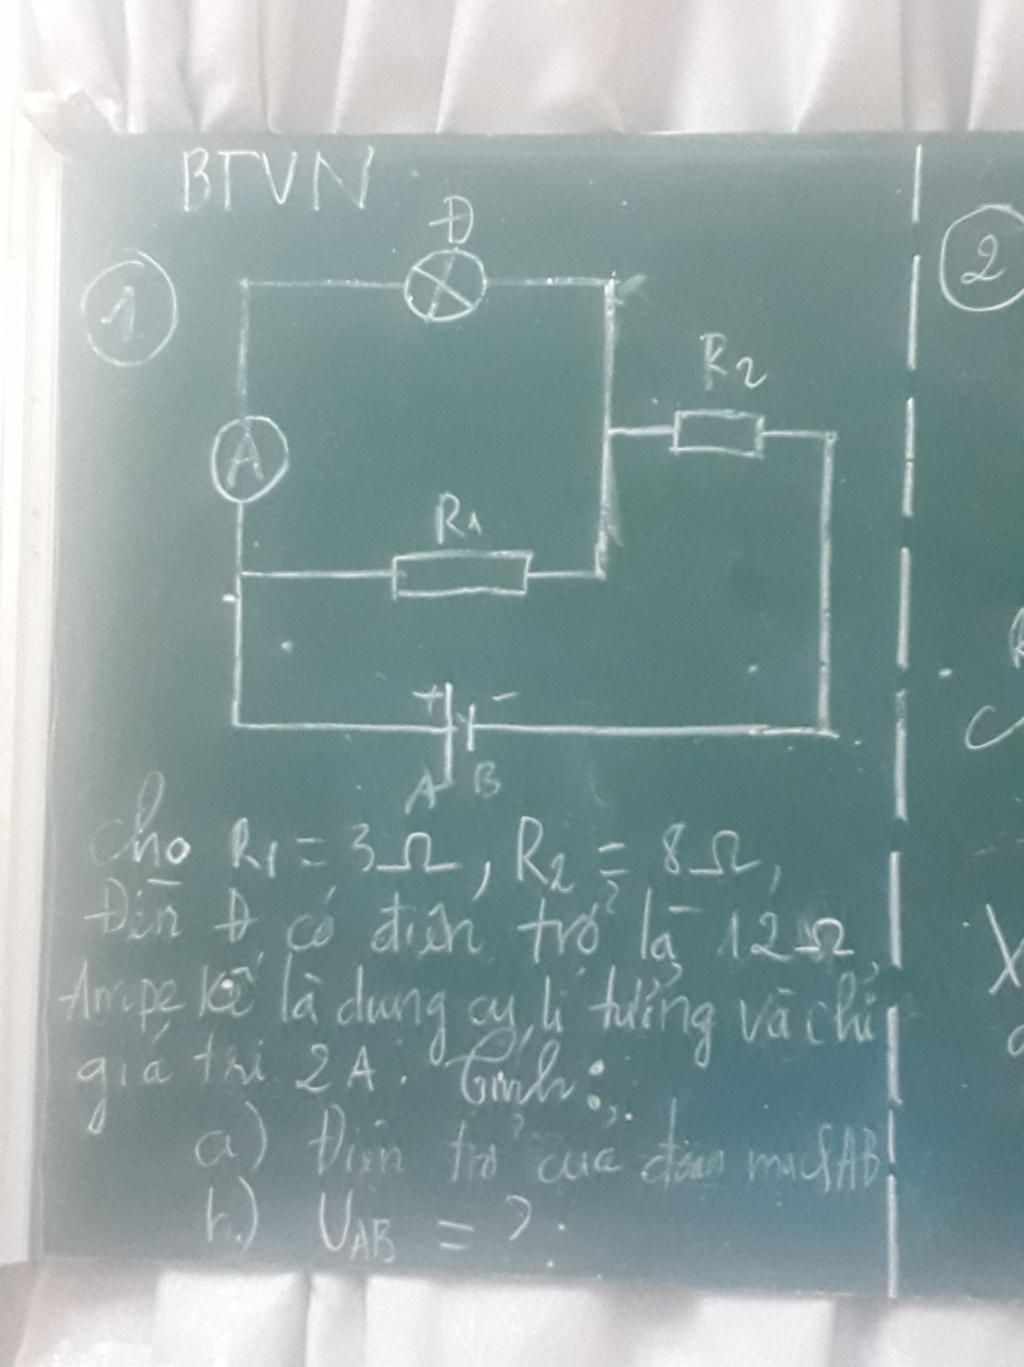 BTVN
Đ
1
2
R2
A
R1
+ -
A B
Cho R1 = 3Ω, R2 = 8Ω,
Đèn Đ có điện trở là 12Ω,
Ampe kế là dụng cụ lí tưởng và chỉ
giá trị 2A. Tính:
a) Điện trở của đoạn mạch AB
b.) UAB = ?